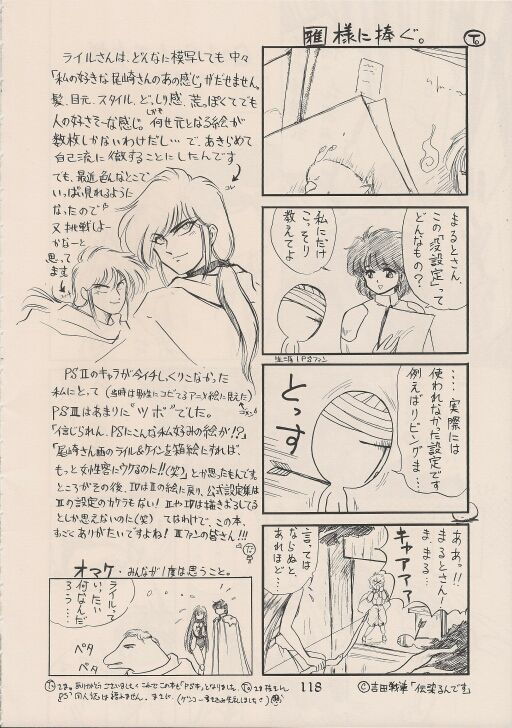 雅様に捧ぐ。
ライルさんは、どんなに模写しても中々
「私の好きな尾崎さんのあの感じ」がだせません。
髪、目元、スタイル、どっしり感、荒っぽくてでも
人の好きそーな感じ。しかも何せ元となる絵が
数枚しかないわけだし…で、あきらめて
自己流に徹することにしたんです
でも、最近色んなとこで
いっぱい見れるように
なったので
又挑戦しよー
かなーと
思って
ます
コレ
PSⅡのキャラが今イチしっくりこなかった
私にとって(当時は男性にコビてるアニメ絵に見えた)
PSⅢはあまりに"ツボ"でした。
「信じられん、PSにこんな私好みの絵が!?」
「尾崎さん画のライル&ケインを箱絵にすれば、
もっと女性客にウケるのに!!(笑)」とか思ったもんです。
ところがその後、ⅣはⅡの絵に戻り、公式設定集は
Ⅲの設定のカケラもない!ⅡやⅣは描きおろしてる
としか思えないのに(笑)てなわけで、この本、
すごくありがたいですよね!Ⅲファンの皆さん!!!
オマケ・みんなが1度は思うこと。
ライルって
いったい
何なんだ
ろう…
ペタ
ペタ
まるとさん、
この「没設定」って
どんなもの?
私にだけ
こっそり
教えてよ
……実際には
使われなかった設定です
例えばリビングま…
とっす
ああ。!!
まるとさん!
ま、まる…
キャアアア
言っては
ならぬと
あれほど…
118
©吉田戦車「伝染るんです」